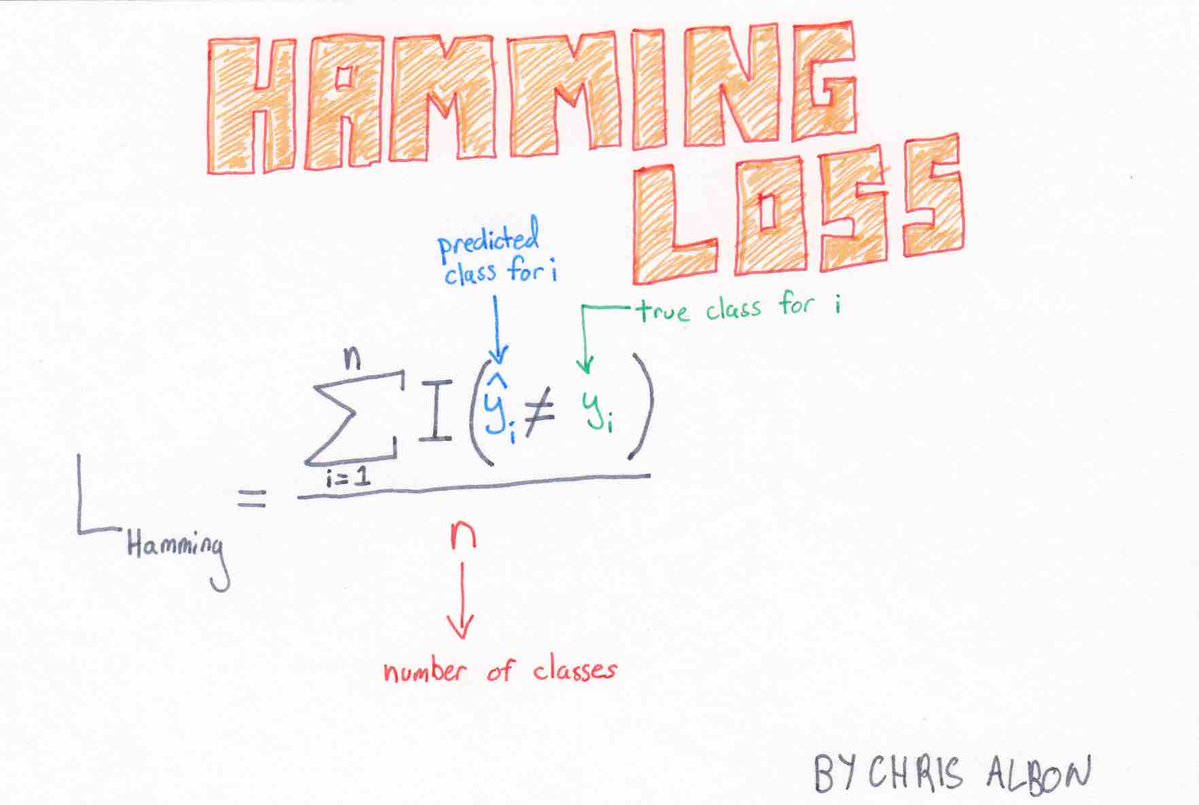 HAMMING
LOSS
predicted
class for i
true class for i
n
∑ I ( ŷᵢ ≠ yᵢ )
i=1
L Hamming =
n
number of classes
BY CHRIS ALBON